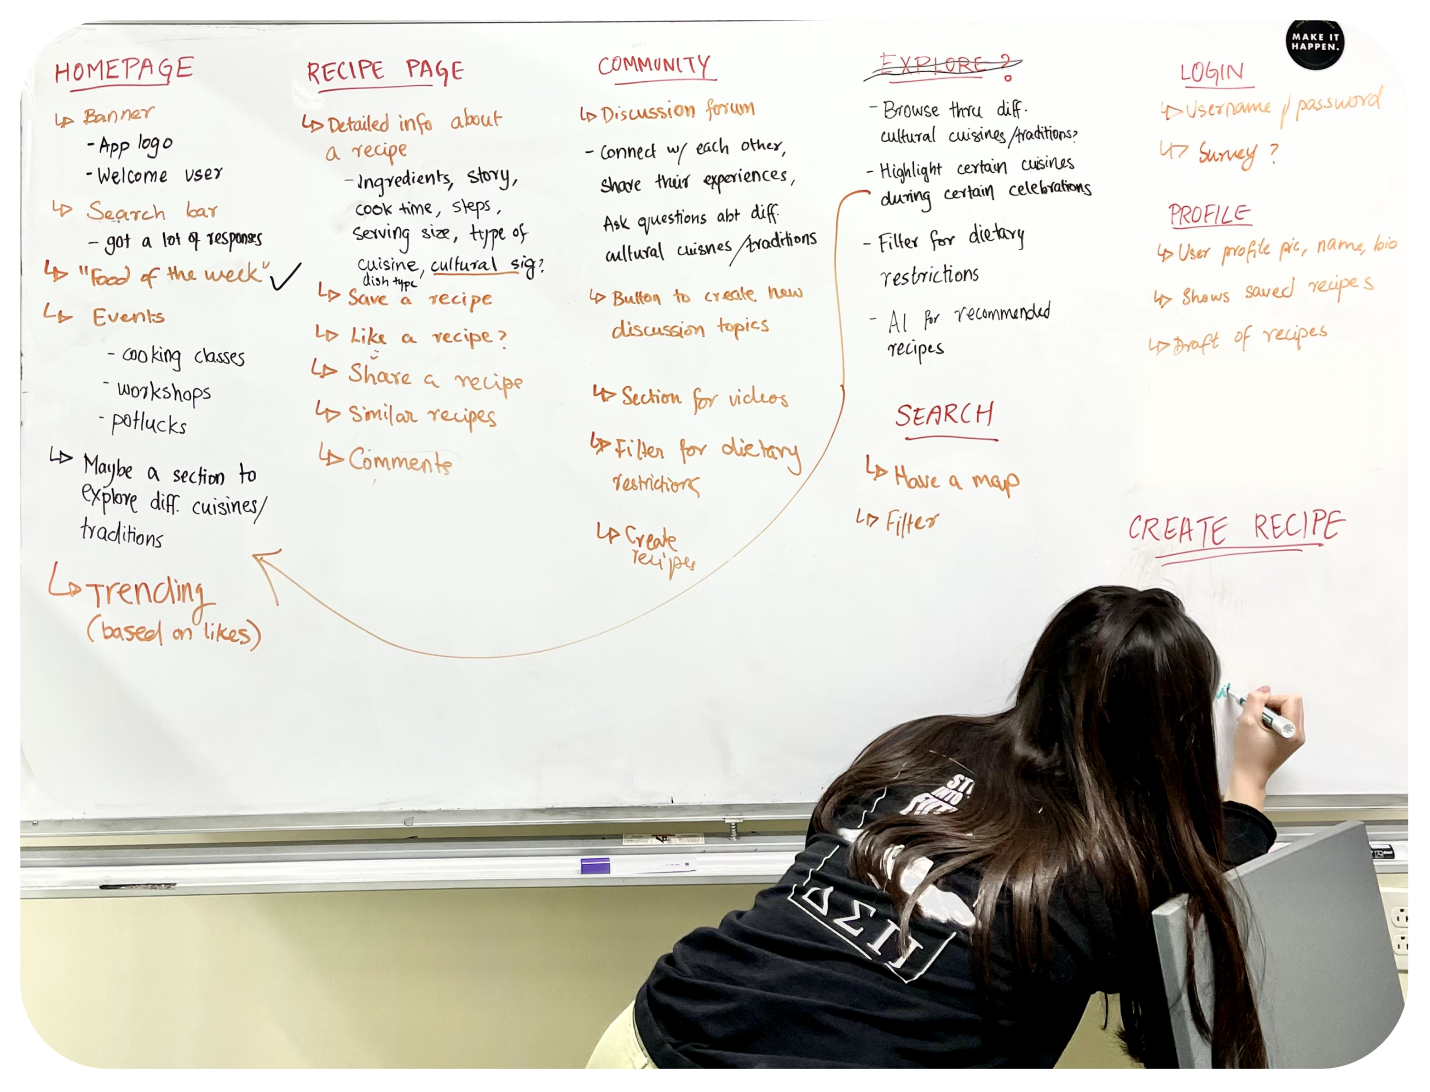 HOMEPAGE
↳ Banner
- App logo
- Welcome user
↳ Search bar
- got a lot of responses
↳ "Food of the week" ✓
↳ Events
- cooking classes
- workshops
- potlucks
↳ Maybe a section to
explore diff. cuisines/
traditions
↳ Trending
(based on likes)
RECIPE PAGE
↳ Detailed info about
a recipe
- Ingredients, story,
cook time, steps,
serving size, type of
cuisine, cultural sig?
dish type
↳ Save a recipe
↳ Like a recipe?
↳ Share a recipe
↳ Similar recipes
↳ Comments
COMMUNITY
↳ Discussion forum
- Connect w/ each other,
share their experiences,
Ask questions abt diff.
cultural cuisnes/traditions
↳ Button to create new
discussion topics
↳ Section for videos
↳ Filter for dietary
restrictions
↳ Create
recipes
EXPLORE?
- Browse thru diff.
cultural cuisines/traditions?
- Highlight certain cuisines
during certain celebrations
- Filter for dietary
restrictions
- AI for recommended
recipes
SEARCH
↳ Have a map
↳ Filter
MAKE IT
HAPPEN.
LOGIN
↳ Username / password
↳ Survey?
PROFILE
↳ User profile pic, name, bio
↳ Shows saved recipes
↳ Draft of recipes
CREATE RECIPE
INTO
ΔΣΠ